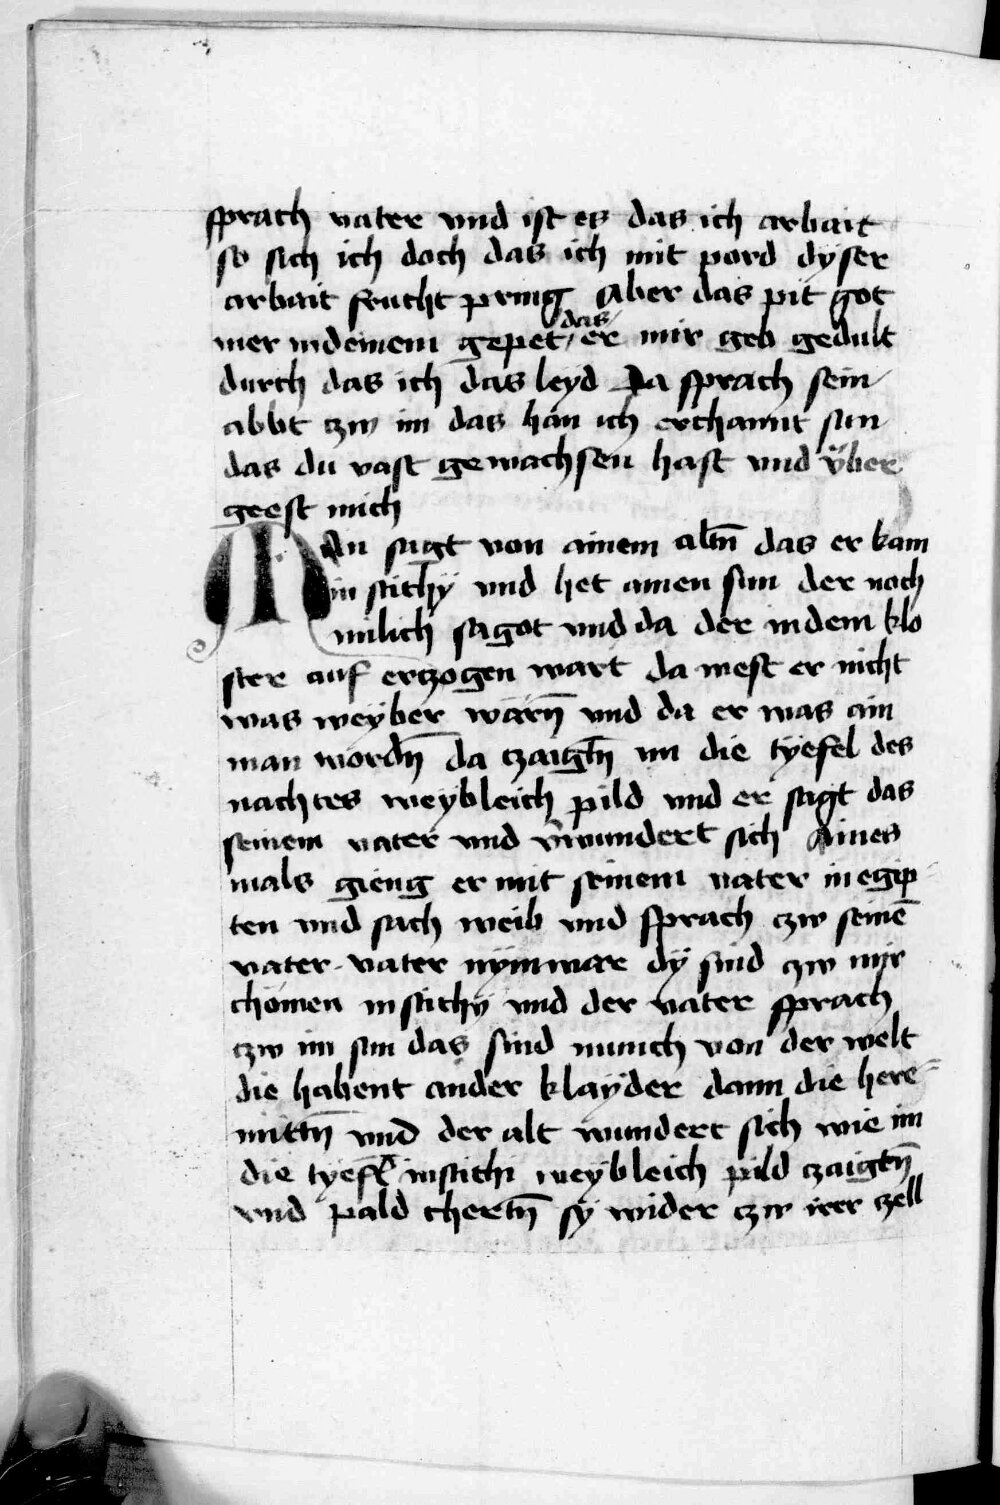 sprach vater vnd ist es das ich arbait
so sich ich doch das ich mit pord dyser
arbait frucht pring Aber das pit got
mer in deinem gepet das er mir geb gedult
durch das ich das leyd Da sprach sein
abbt czw im das han ich erchannt sun
das du vast gewachsen hast vnd v̈ber
geest mich
Man sagt von ainem altn̄ das er kam
in stithÿ vnd het ainen sun der noch
milich sagot vnd da der in dem klo
ster auf erczogen wart da west er nicht
was weyber wärn̄ vnd da er was ain
man wordn̄ da czaigtn̄ im die tyefel des
nachtes weybleich pild vnd er sagt das
seinem vater vnd v̄wundert sich Aines
mals gieng er mit seinem vater in egip
ten vnd sach weib vnd sprach czw seinē
vater vater nÿm war dÿ sind czw mir
chömen in stithÿ vnd der vater sprach
czw im sun das sind münich von der welt
die habent ander klayder dann die here
mittn̄ vnd der alt wundert sich wie im
die tyefel in stithi weybleich pild czaigtn̄
vnd pald chertn̄ sy wider czw irer czell